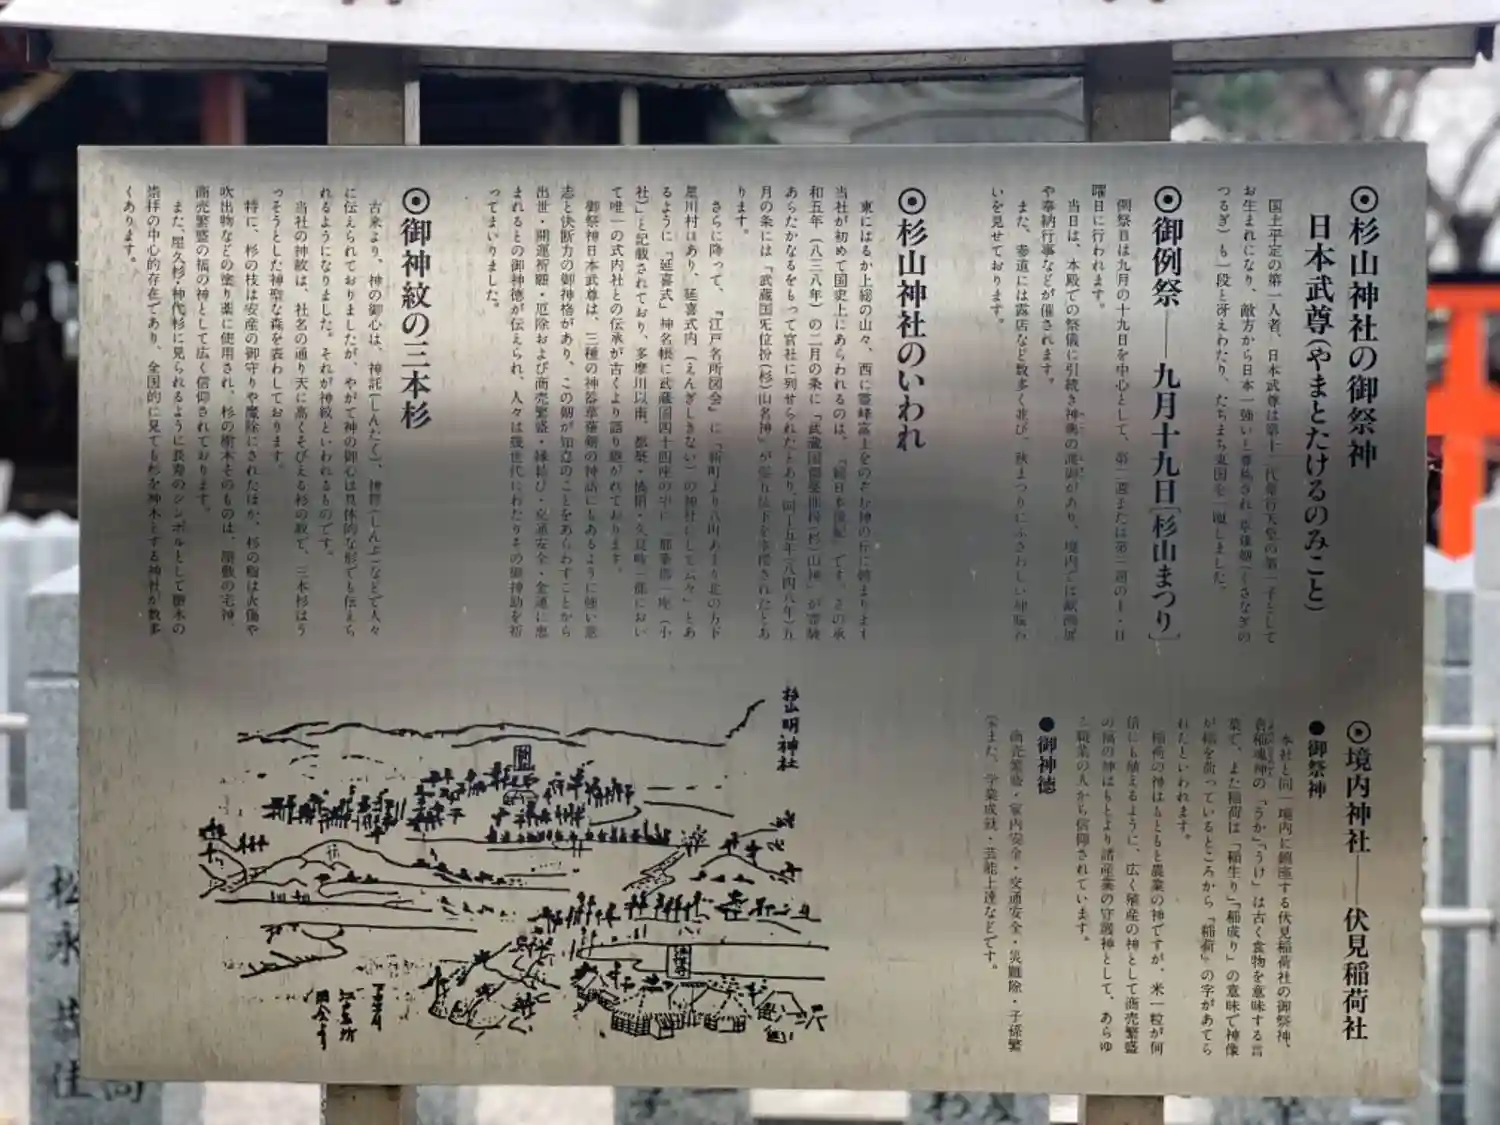 ◉杉山神社の御祭神
日本武尊(やまとたけるのみこと)
国土平定の第一人者、日本武尊は第十二代景行天皇の第一子として
お生まれになり、敵方から日本一強いと尊称され、草薙剱(くさなぎの
つるぎ)も一段と冴えわたり、たちまち東国を
◉御例祭――九月十九日[杉山まつり]
例祭日は九月の十九日を中心として、第二週または第三週の土・日
曜日に行われます。
当日は、本殿での祭儀に引続き神輿の渡御があり、境内では
や奉納行事などが催されます。
また、参道には露店など数多く並び、秋まつりにふさわしい賑わ
いを見せております。
◉杉山神社のいわれ
東にはるか上総の山々、西に霊峰富士をのぞむ神の丘に鎮まります
当社が初めて国史上にあらわれるのは、『続日本後紀』です。さの承
和五年(八三八年)の二月の条に「武蔵国都築郡枌(杉)山神」が霊験
あらたかなるをもって官社に列せられたとあり、同十五年(八四八年)五
月の条には「武蔵国无位枌(杉)山名神」が従五位下を
ります。
さらに降って、『江戸名所図会』に「新町より八町あまり北の方下
星川村にあり、延喜式内(えんぎしきない)の神社にして云々」とあ
るように『延喜式』神名帳に武蔵国四十四座の中に「都筑郡一座(小
社)」と記載されており、多摩川以南、都築・橘樹・久良岐三郡におい
て唯一の式内社との伝承が古くより語り継がれております。
御祭神日本武尊は、三種の神器草薙剱の神話にもあるように強い意
志と決断力の御神格があり、この剱が知恵のことをあらわすことから
出世・開運祈願・厄除および商売繁盛・縁結び・交通安全・金運に恵
まれるとの御神徳が伝えられ、人々は幾世代にわたりその御神助を祈
ってまいりました。
◉御神紋の三本杉
古来より、神の御心は、神託(しんたく)、神符(しんぷ)などで人々
に伝えられておりましたが、やがて神の御心は具体的な形でも伝えら
れるようになりました。それが神紋といわれるものです。
当社の神紋は、社名の通り天に高くそびえる杉の紋で、三本杉はう
っそうとした神聖な森を表わしております。
特に、杉の枝は安産の御守りや魔除にされたほか、杉の脂は火傷や
吹出物などの塗り薬に使用され、杉の樹木そのものは、屋敷の宅神、
商売繁盛の福の神として広く信仰されております。
また、屋久杉・神代杉に見られるように長寿のシンボルとして樹木の
崇拝の中心的存在であり、全国的に見ても杉を神木とする神社が数多
くあります。
◉境内神社――伏見稲荷社
●御祭神
本社と同一境内に鎮座する伏見稲荷社の御祭神、
倉稲魂神の「うか」「うけ」は古く食物を意味する言
葉で、また稲荷は「稲生り」「稲成り」の意味で神像
が稲を荷っているところから「稲荷」の字があてら
れたといわれます。
稲荷の神はもともと農業の神ですが、米一粒が何
倍にも殖えるように、広く殖産の神として商売繁盛
の福の神はもとより諸産業の守護神として、あらゆ
る職業の人から信仰されています。
●御神徳
商売繁盛・家内安全・交通安全・災難除・子孫繁
栄また、学業成就・芸能上達などです。
杉山明神社
松永